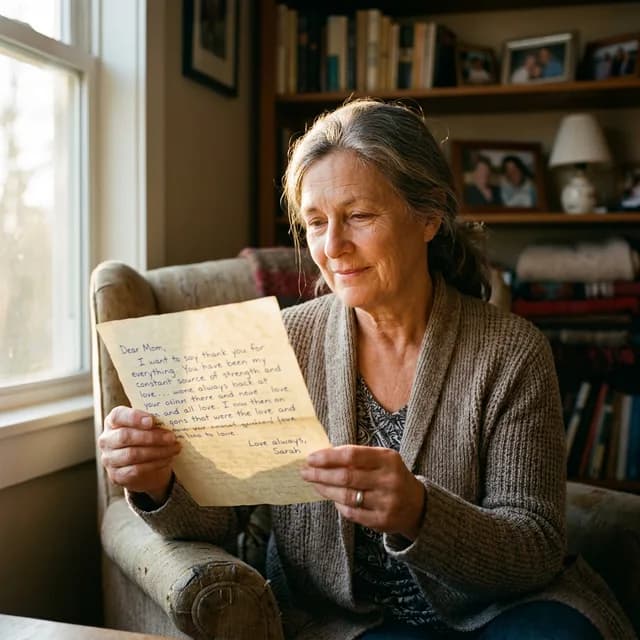 Dear Mom,
I want to say thank you for
everything. You have been my
constant source of strength and
love... wome always back at
your olinn there and neve.. love.
and all love. I now then on
gons that were the love and
to love.
Love always,
Sarah